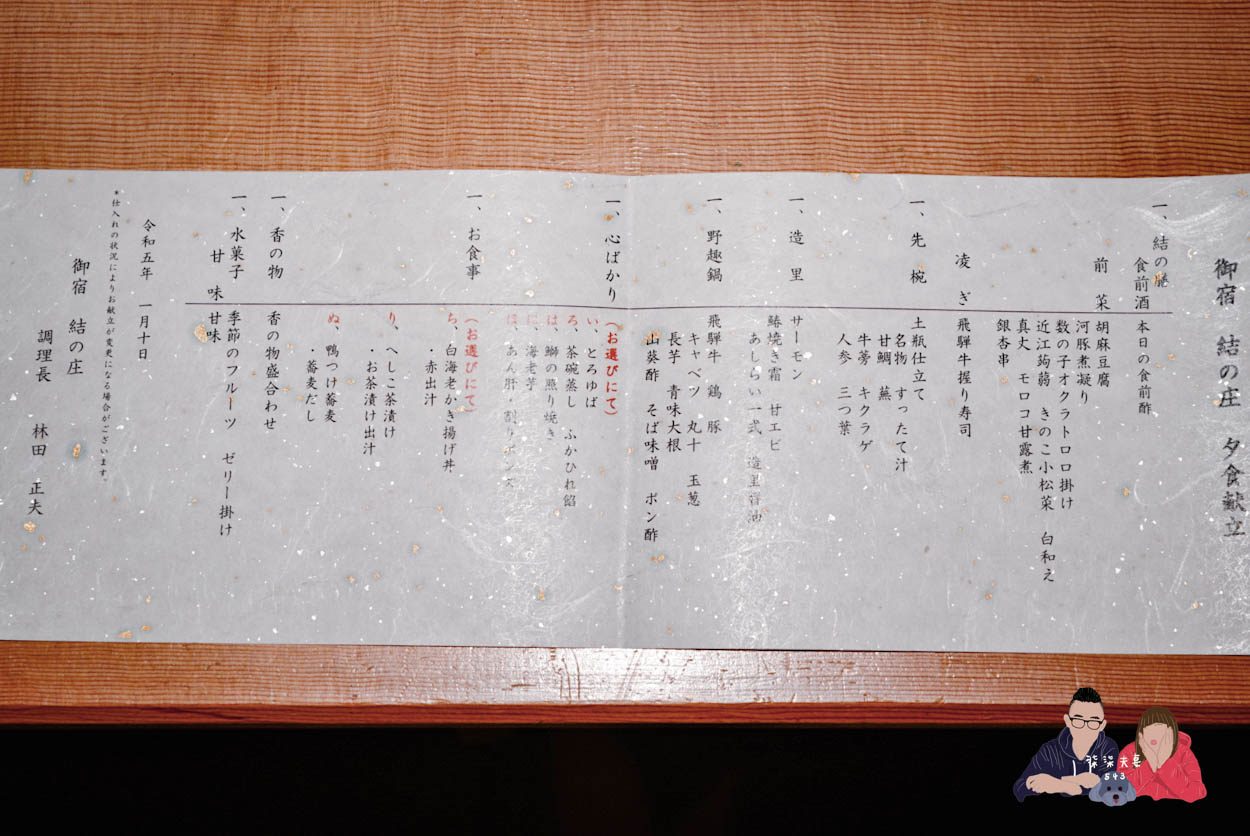 御宿 結の庄 夕食献立
一、結の膳
食前酒 本日の食前酢
前菜 胡麻豆腐
河豚煮凝り
数の子オクラトロロ掛け
近江蒟蒻 きのこ小松菜 白和え
真丈 モロコ甘露煮
銀杏串
凌ぎ 飛騨牛握り寿司
一、先椀 土瓶仕立て
名物 すったて汁
甘鯛 蕪
牛蒡 キクラゲ
人参 三つ葉
一、造里 サーモン
鰆焼き霜 甘エビ
あしらい一式 造里醤油
一、野趣鍋 飛騨牛 鶏 豚
キャベツ 丸十 玉葱
長芋 青味大根
山葵酢 そば味噌 ポン酢
一、心ばかり (お選びにて)
い、とろゆば
ろ、茶碗蒸し ふかひれ餡
は、鰤の照り焼き
に、海老芋
ほ、あん肝・削りポンズ
一、お食事 (お選びにて)
ち、白海老かき揚げ丼
・赤出汁
り、へしこ茶漬け
・お茶漬け出汁
ぬ、鴨つけ蕎麦
・蕎麦だし
一、香の物 香の物盛合わせ
一、水菓子 季節のフルーツ ゼリー掛け
甘味 甘味
令和五年 一月十日
*仕入れの状況によりお献立が変更になる場合がございます。
御宿 結の庄
調理長 林田 正夫
夫妻
543